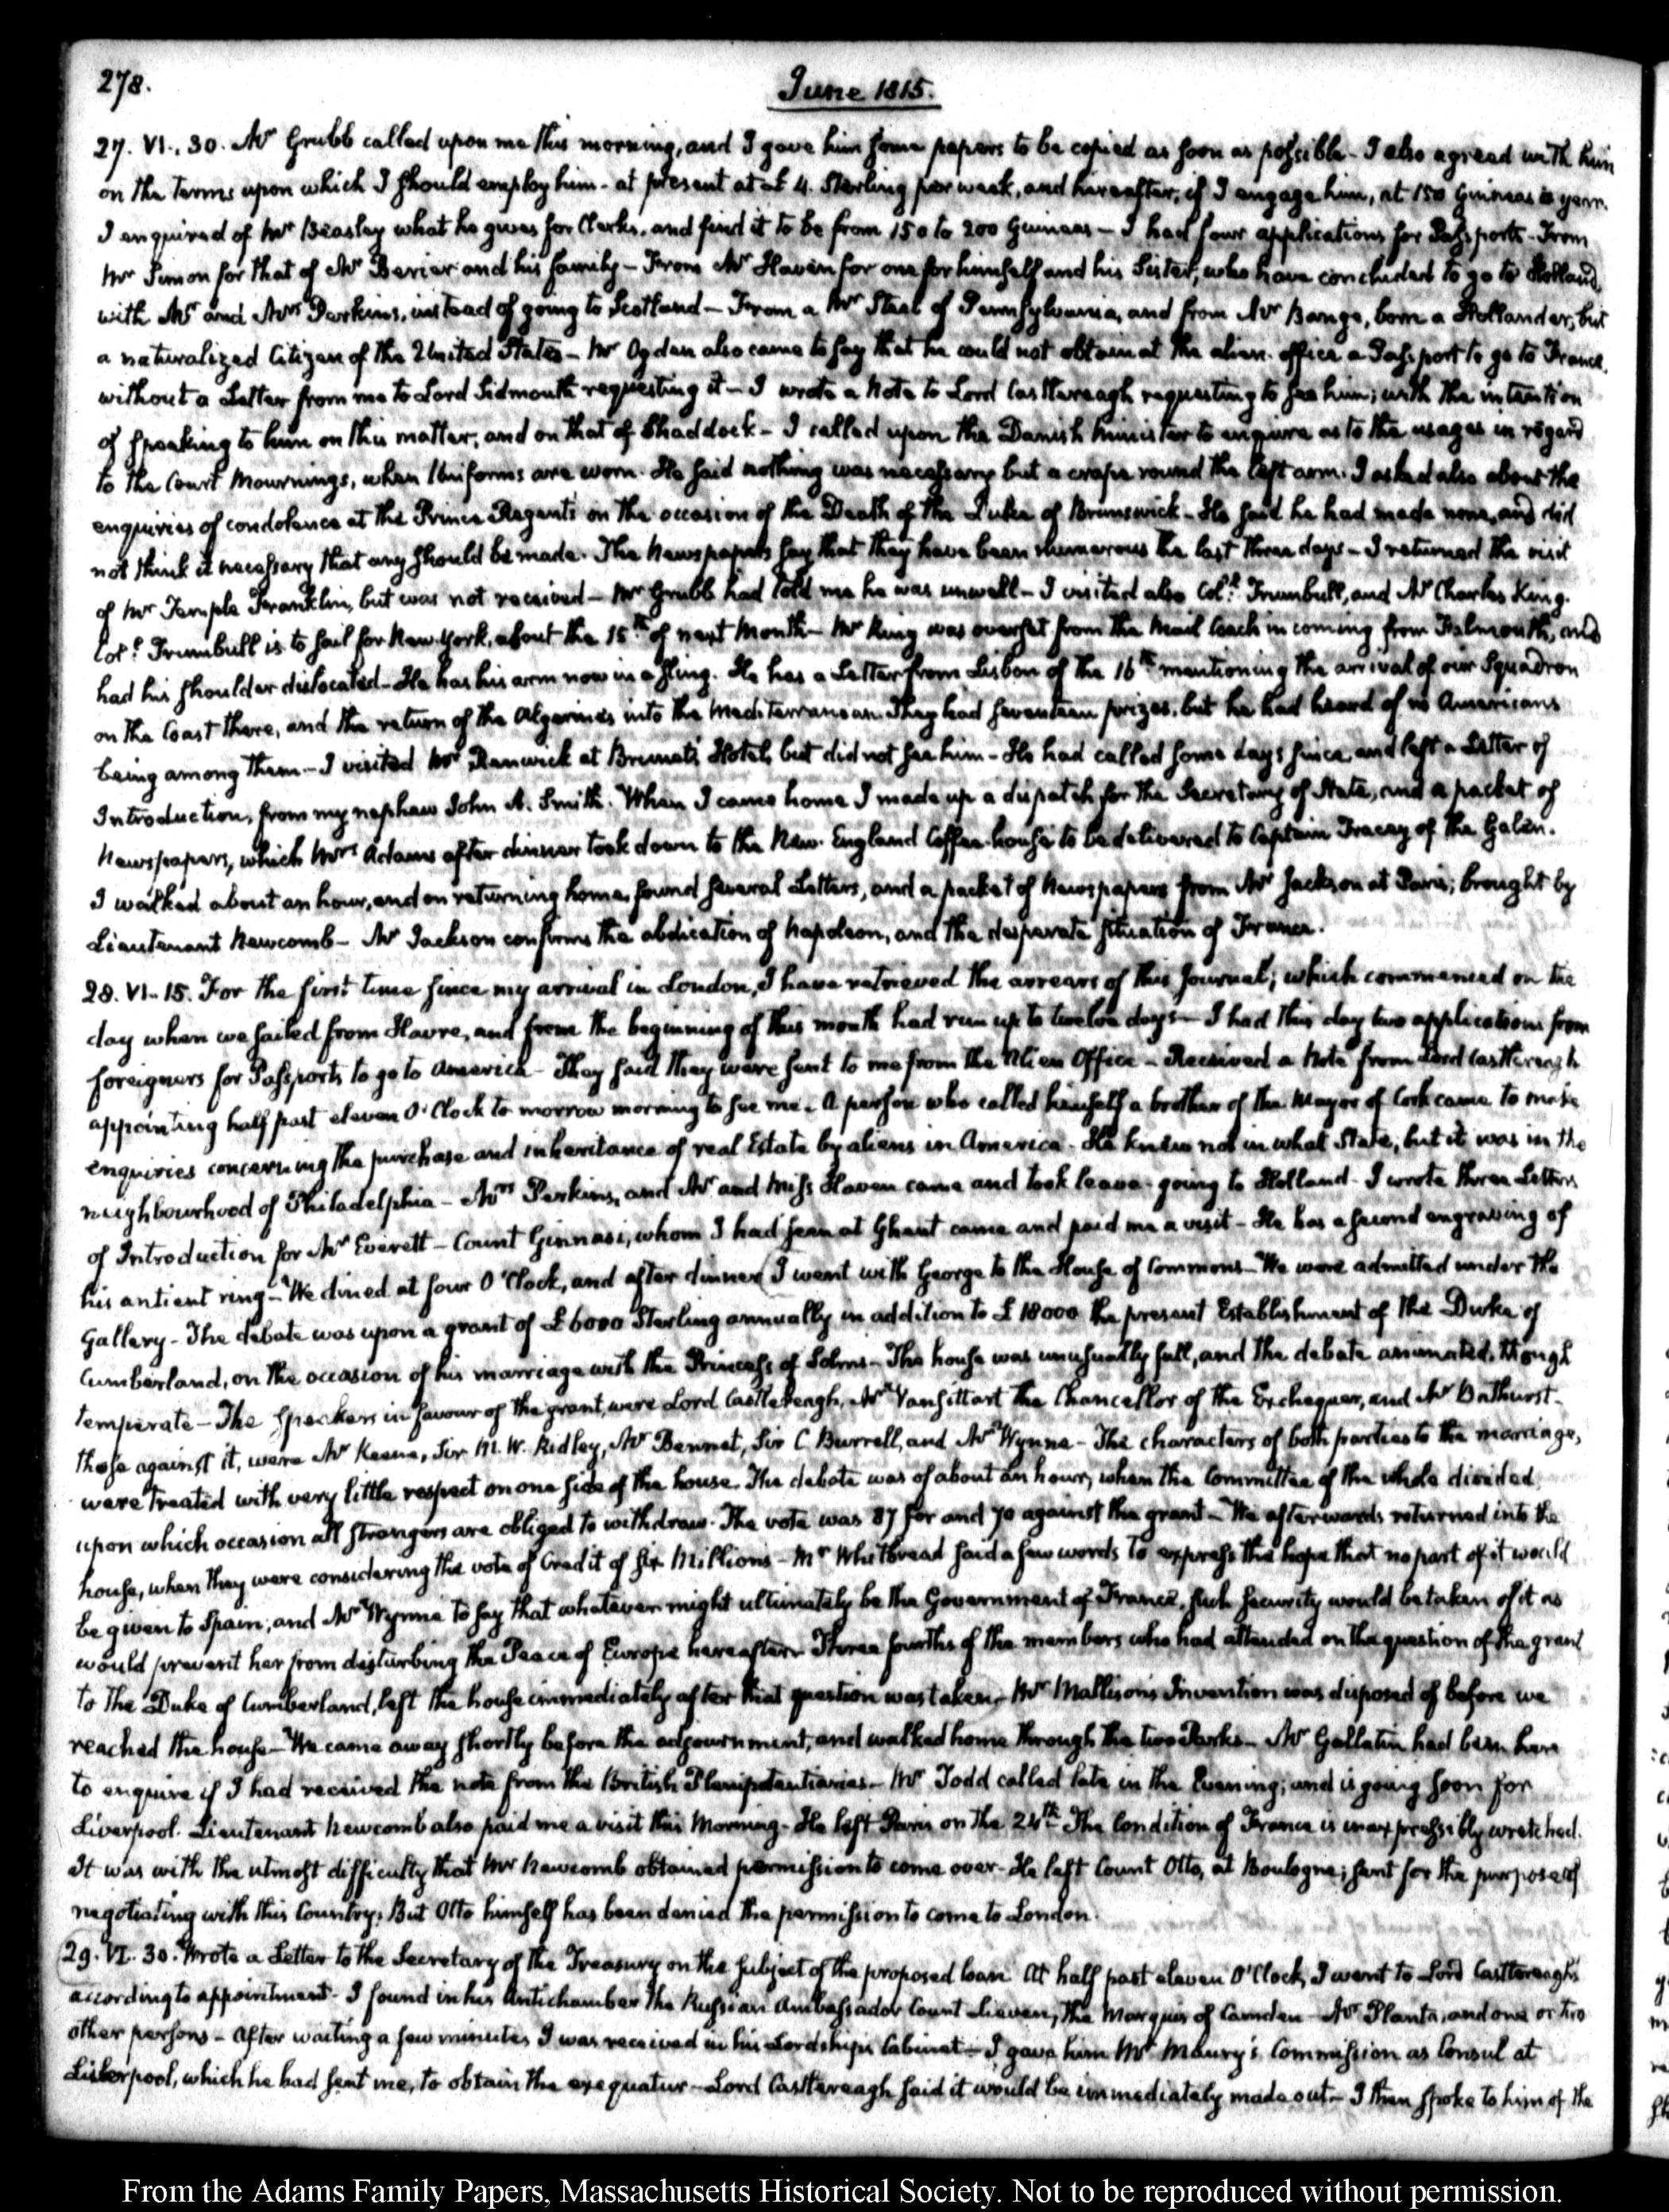 278.
June 1815.
27. VI.. 30. Mr Grubb called upon me this morning, and I gave him some papers to be copied as soon as possible - I also agreed with him
on the terms upon which I should employ him - at present at £ 4. Sterling per week, and hereafter, if I engage him, at 150 Guineas a year.
I enquired of Mr Beasley what he gives for Clerks, and find it to be from 150 to 200 Guineas - I had four applications for Passports - From
Mr Simon for that of Mr and his family - From Mr Haven for one for himself and his Sister, who have concluded to go to Holland,
with Mr and Mrs Perkins, instead of going to Scotland - From a Mr Steel of Pennsylvania, and from Mr Bange, born a Hollander, but
a naturalized Citizen of the United States - Mr Ogden also came to say that he could not obtain at the alien office a Passport to go to France,
without a Letter from me to Lord Sidmouth requesting it - I wrote a Note to Lord Castlereagh requesting to see him; with the intention
of speaking to him on this matter, and on that of Shaddock - I called upon the Danish Minister to enquire as to the usages in regard
to the Court Mournings, when Uniforms are worn. He said nothing was necessary but a crape round the left arm. I asked also about the
enquiries of condolence at the Prince Regent's on the occasion of the Death of the Duke of Brunswick - He said he had made none, and did
not think it necessary that any should be made. The Newspapers say that they have been numerous the last three days - I returned the visit
of Mr Temple Franklin, but was not received - Mr Grubb had told me he was unwell - I visited also Coll. Trumbull, and Mr Charles King.
Coll. Trumbull is to sail for New York, about the 15th of next Month - Mr King was overset from the Mail Coach in coming from Falmouth, and
had his shoulder dislocated - He has his arm now in a sling. He has a Letter from Lisbon of the 16th mentioning the arrival of our Squadron
on the Coast there, and the return of the Algerines into the Mediterranean. They had seventeen prizes, but he had heard of no Americans
being among them - I visited Mr Renwick at Brunet's Hotel, but did not see him - He had called some days since, and left a Letter of
Introduction, from my nephew John A. Smith. When I came home I made up a dispatch for the Secretary of State, and a packet of
Newspapers, which Mrs Adams after dinner took down to the New-England Coffee-house to be delivered to Captain Tracey of the Galen.
I walked about an hour, and on returning home, found several Letters, and a packet of Newspapers from Mr Jackson at Paris; brought by
Lieutenant Newcomb - Mr Jackson confirms the abdication of Napoleon, and the desperate situation of France.
28. VI- 15. For the first time since my arrival in London, I have retrieved the arrears of this Journal; which commenced on the
day when we sailed from Havre, and from the beginning of this month had run up to twelve days - I had this day two applications from
foreigners for Passports to go to America - They said they were sent to me from the Alien Office - Received a Note from Lord Castlereagh
appointing half past eleven O'Clock to morrow morning to see me. A person who called himself a brother of the Mayor of Cork came to make
enquiries concerning the purchase and inheritance of real Estate by aliens in America - He knew not in what State, but it was in the
neighbourhood of Philadelphia - Mrs Perkins, and Mr and Miss Haven came and took leave - going to Holland - I wrote three Letters
of Introduction for Mr Everett - Count Ginnasi, whom I had seen at Ghent came and paid me a visit - He has a second engraving of
his antient ring - We dined at four O'Clock, and after dinner I went with George to the House of Commons - We were admitted under the
Gallery - The debate was upon a grant of £6000 Sterling annually in addition to £18000 the present Establishment of the Duke of
Cumberland, on the occasion of his marriage with the Princess of Solms - The house was unusually full, and the debate animated, though
temperate - The Speakers in favour of the grant, were Lord Castlereagh, Mr Vansittart the Chancellor of the Exchequer, and Mr Bathurst -
those against it, were Mr Keene, Sir M. W. Ridley, Mr Bennet, Sir C. Burrell, and Mr Wynne - The characters of both parties to the marriage,
were treated with very little respect on one side of the house. The debate was of about an hour, when the Committee of the whole divided
upon which occasion all strangers are obliged to withdraw. The vote was 87 for and 70 against the grant - We afterwards returned into the
house, when they were considering the vote of Credit of six Millions - Mr Whitbread said a few words to express the hope that no part of it would
be given to Spain, and Mr Wynne to say that whatever might ultimately be the Government of France, such security would be taken of it as
would prevent her from disturbing the Peace of Europe hereafter - Three fourths of the members who had attended on the question of the grant
to the Duke of Cumberland, left the house immediately after that question was taken - Mr Mallison's Invention was disposed of before we
reached the house - We came away shortly before the adjournment, and walked home through the two Parks - Mr Gallatin had been here
to enquire if I had received the note from the British Plenipotentiaries - Mr Todd called late in the Evening; and is going soon for
Liverpool. Lieutenant Newcomb also paid me a visit this Morning - He left Paris on the 24th The Condition of France is inexpressibly wretched.
It was with the utmost difficulty that Mr Newcomb obtained permission to come over - He left Count Otto, at Boulogne; sent for the purpose of
negotiating with this Country; But Otto himself has been denied the permission to come to London.
29. VI. 30. Wrote a Letter to the Secretary of the Treasury on the subject of the proposed loan. At half past eleven O'Clock, I went to Lord Castlereagh's
according to appointment - I found in his Antichamber the Russian Ambassador Count Lieven, the Marquis of Camden - Mr Planta, and one or two
other persons - After waiting a few minutes I was received in his Lordship's Cabinet - I gave him Mr Maury's Commission as Consul at
Liverpool, which he had sent me, to obtain the exequatur - Lord Castlereagh said it would be immediately made out - I then spoke to him of the
From the Adams Family Papers, Massachusetts Historical Society. Not to be reproduced without permission.